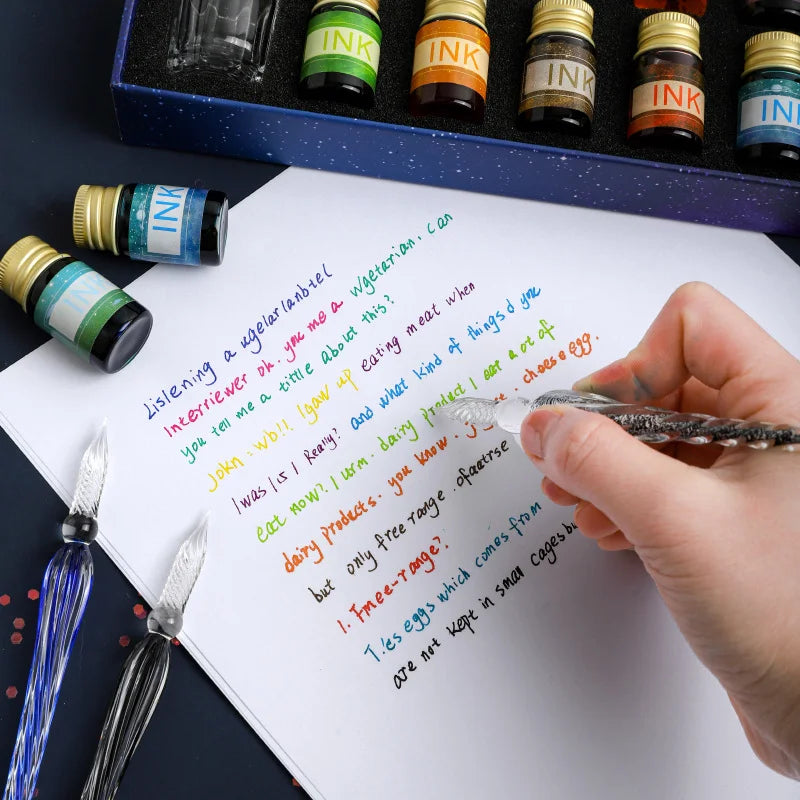 INK
INK
INK
INK
INK
INK
INK
Listening a ugelarlanbtel
Interriewer oh. you me a wgetarian. can
you tell me a tittle about this?
John = wb!!. Igaw up eating meat when
I was I.s I Really? and what kind of things d you
eat now?. I usm. dairy product I eat a ot of
dairy products. you know. choese egg.
but only free range. ofaatrse
1. Fmee-range?
T.'es eggs which comes from
are not kept in small cages bu